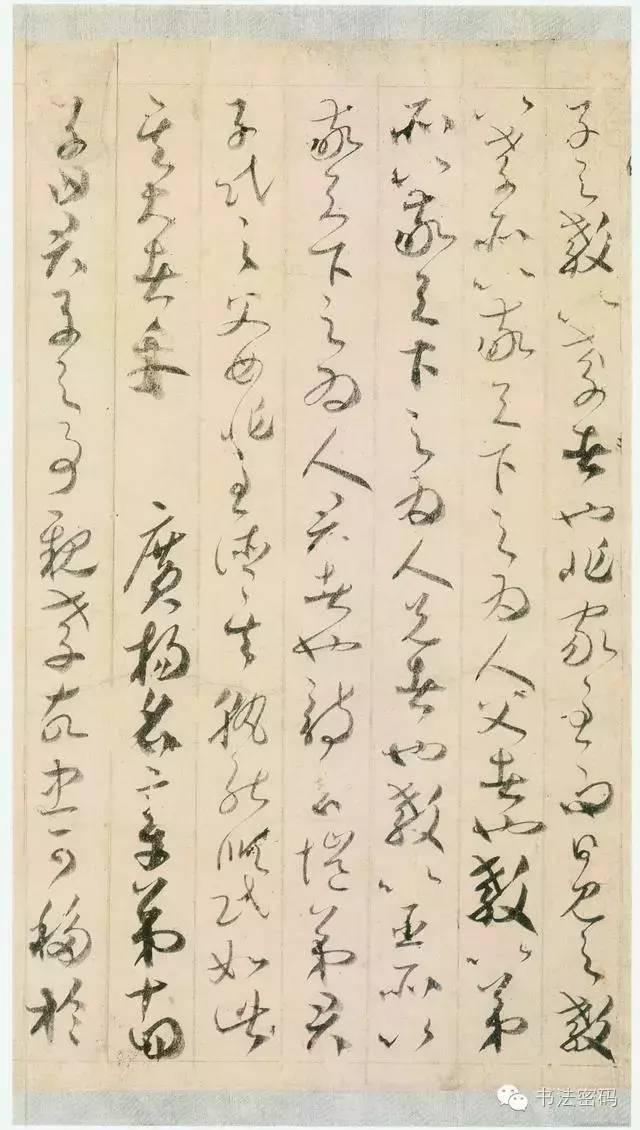 子之教以孝者也非家至而日見之教
以孝所以敬天下之為人父者也教以弟
所以敬天下之為人兄者也教以臣所以
敬天下之為人君者也詩云愷弟君
子民之父母非至德其孰能順民如此
其大者乎 廣揚名章第十四
子曰君子之事親孝故忠可移於
书法密码